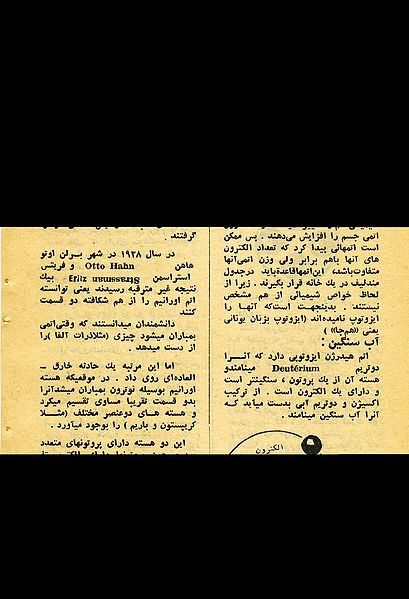 اتمی جسم را افزایش می‌دهند . پس ممکن
است اتمهائی پیدا کرد که تعداد الکترون
های آنها باهم برابر ولی وزن اتمی‌آنها
متفاوت‌باشد این‌اتمهاقاعدةباید درجدول
مندلیف در یك خانه قرار بگیرند . زیرا از
لحاظ خواص شیمیائی از هم مشخص
نیستند . بدینجهت است‌که آنها را
ایزوتوپ نامیده‌اند (ایزوتوپ بزبان یونانی
یعنی «هم‌جا» )
آب سنگین :
اتم هیدرژن ایزوتوپی دارد که آنـرا
دوتریم Deutérium مینامندو
هسته آن از یك پروتون ، سنگینتر است
و دارای یك الکترون است . از ترکیب
اکسیژن و دوتریم آبی بدست میاید کـه
آنرا آب سنگین مینامند .
الکترون
گرفتند .
در سال ۱۹۲۸ در شهر بـرلن اوتو
هاهن Otto Hahn و فریتس
استراسمن Fritz Strassman بیك
نتیجه غیر مترقبه رسیدند یعنی توانسته
اتم اورانیم را از هم شکافته دو قسمت
کنند
دانشمندان میدانستند که وقتی‌اتمی
بمباران میشود چیزی (مثلاذرات آلفا )را
از دست میدهد .
اما این مرتبه یك حادثه خارق ـ
العاده‌ای روی داد . در موقعیکه هسته
اورانیم بوسیله نوترون بمباران میشدآنرا
بدو قسمت تقریبا مساوی تقسیم میکرد
و هسته هـای دوعنصر مختلف (مثـلا
کریپستون و باریم ) را بوجود میاورد .
این دو هسته دارای پروتونهای متعدد